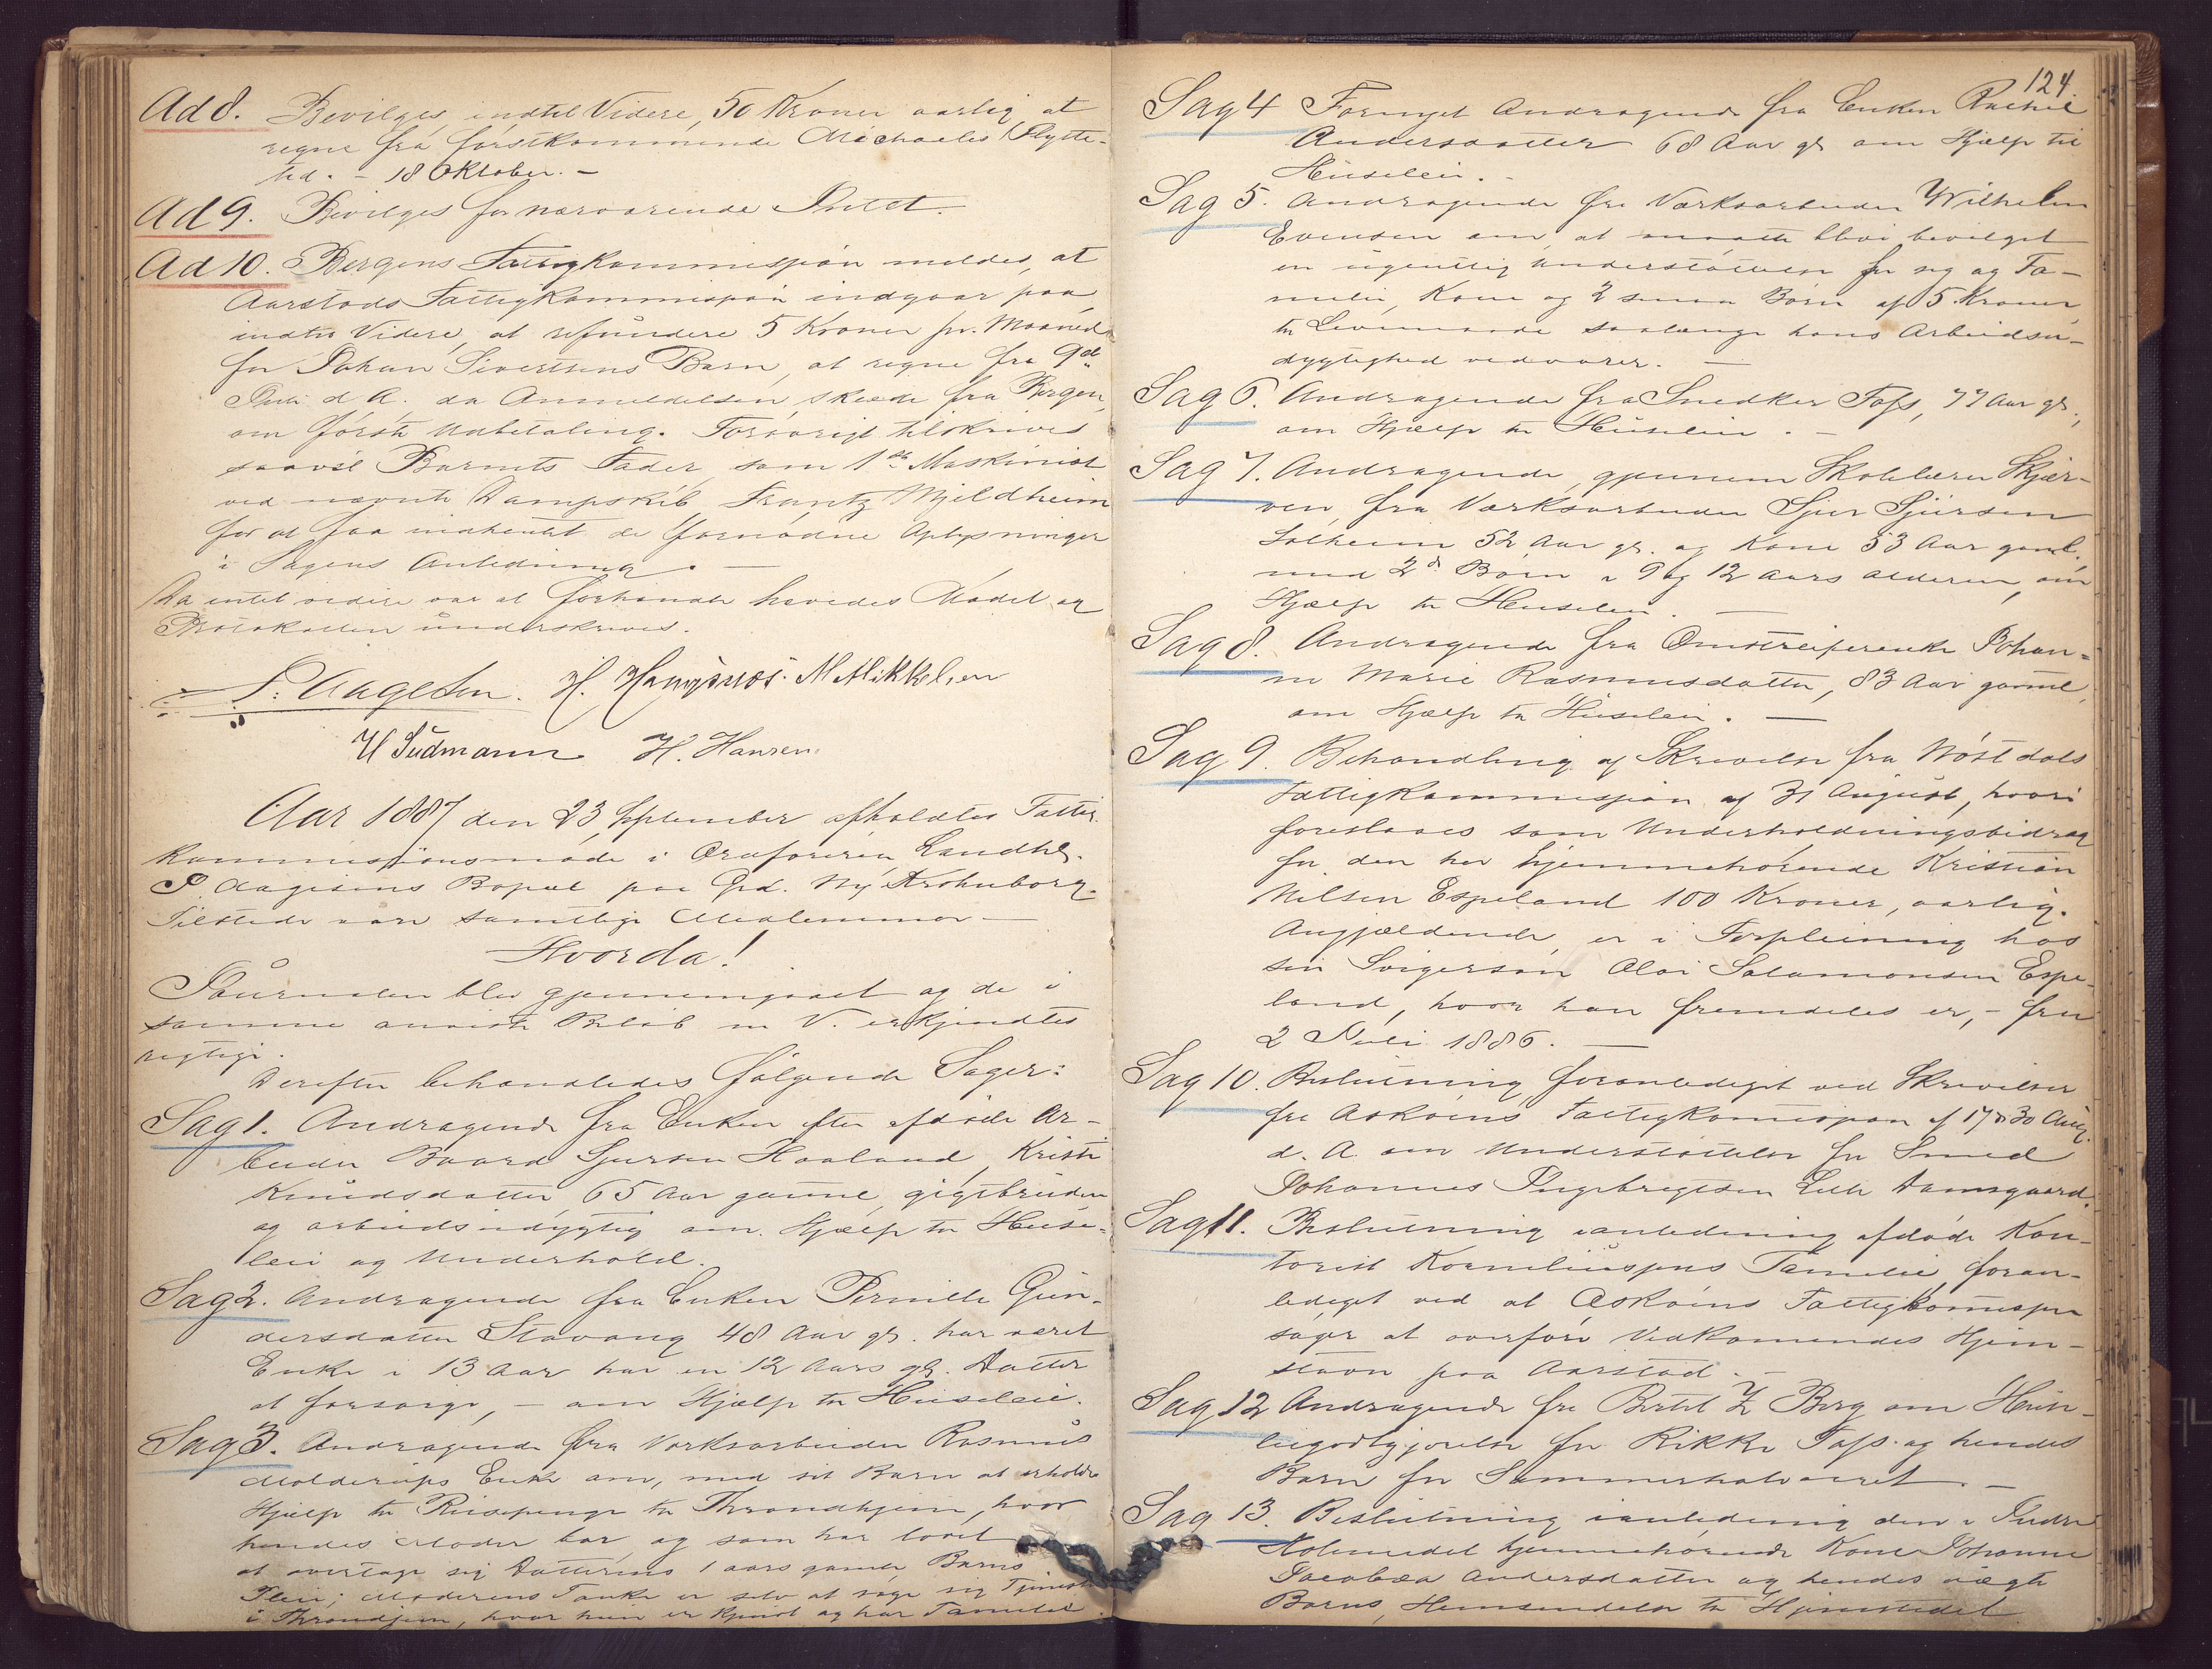 Ad 8. Bevilges indtil Videre, 50 Kroner aarlig at
regne fra førstkommende Michaelis Flytte-
tid. - 18 Oktober. -
Ad 9. Bevilges for nærværende Intet.
Ad 10. Bergens Fattigkommission meldes, at
Aarstads Fattigkommission indgaar paa
indtil Videre, at refundere 5 Kroner pr. Maaned
for Johan Sivertsens Barn, at regne fra 9de
Juli d. A. da Anmeldelsen skeede fra Bergen,
om første Udbetaling. Forøvrigt tilskrives
saavel Barnets Fader, som 1ste Maskinist
ved nævnte Dampskib Frantz Mjeldheim
for at faa indhentet de fornødne Oplysninger
i Sagens Anledning. -
Da intet videre var at forhandle hævedes Mødet og
Protokollen underskrives.
P. Aagesen. H. Haugsnæs. M Mikkelsen
U Sudmann H. Hansen.
Aar 1887 den 23 September afholdtes Fattig-
kommissionsmøde i Ordføreren, Landhl.
P. Aagesens Bopæl paa Grd. Ny Krohnborg.
Tilstede vare samtlige Medlemmer -
Hvorda!
Journalen blev gjennemgaaet og de i
samme anviste Beløb m V. erkjendtes
rigtige.
Derefter behandledes følgende Sager:
Sag 1. Andragende fra Enken efter afdøde Ar-
beider Baard Sjursen Haaland, Kristi
Knudsdatter, 65 Aar gammel, gigtbruden
og arbeidsudygtig om Hjælp til Huse-
leie og Underhold.
Sag 2. Andragende fra Enken Pernille Gun-
dersdatter Stavang 48 Aar gl. har været
Enke i 13 Aar har en 12 Aars gl. Datter
at forsørge, - om Hjælp til Huseleie.
Sag 3. Andragende fra Værksarbeider Rasmus
Molderups Enke om, med sit Barn at erholde
Hjælp til Reisepenge til Throndhjem, hvor
hendes Moder bor, og som har lovet
at overtage sig Datterens 1 aars gamle Barns
Pleie; Moderens Tanke er selv at søge sig Tjeneste
i Throndhjem, hvor hun er kjendt og har Familie.
124
Sag 4 Fornyet Andragende fra Enken Rachel
Andersdatter 68 Aar gl. om Hjælp til
Huseleie. -
Sag 5. Andragende fra Værksarbeider Wilhelm
Evensen om, at maatte blive bevilget
en ugentlig Understøttelse for sig og Fa-
milie, Kone og 2 smaa Børn af 5 Kroner,
til Levemaade saalænge hans Arbeidsu-
dygtighed vedvarer. -
Sag 6. Andragende fra Snedker Foss, 77 Aar gl.,
om Hjælp til Huseleie. -
Sag 7. Andragende, gjennem Skolelærer Skjer-
ven, fra Værksarbeider Sjur Sjursen
Solheim 52 Aar gl. og Kone 53 Aar gaml.
med 2de Børn i 9 og 12 Aars Alderen, om
Hjælp til Huseleie. -
Sag 8. Andragende fra Omstreiferenke Johan-
ne Marie Rasmusdatter, 83 Aar gammel,
om Hjælp til Huseleie. -
Sag 9. Behandling af Skrivelse fra Røstdals
Fattigkommission af 31 August, hvori
foreslaaes som Underholdningsbidrag
for den her hjemmehørende Kristian
Nilsen Espeland 100 Kroner, aarlig.
Angjældende er i Forpleining hos
sin Svigersøn Olai Salamonsen Espe-
land, hvor han fremdeles er, - fra
2 Juli 1886. -
Sag 10. Beslutning foranlediget ved Skrivelser
fra Askøens Fattigkommission af 17 & 30 Aug.
d. A. om Understøttelse for Smed
Johannes Ingebregtsen Lille Damsgaard.
Sag 11. Beslutning i anledning afdøde Kon-
torist Korneliussens Familie, foran-
lediget ved at Askøens Fattigkommission
søger at overføre Vedkommendes Hjem-
stavn paa Aarstad. -
Sag 12 Andragende fra Bertel Z Berg om Huse-
leiegodtgjørelse for Rikke Foss og hendes
Barn for Sommerhalvaaret. -
Sag 13. Beslutning i anledning den i Indre
Holmedal hjemmehørende Kone Johanne
Jacobæa Andersdatter og hendes uægte
Barns Hjemsendelse til Hjemstedet.